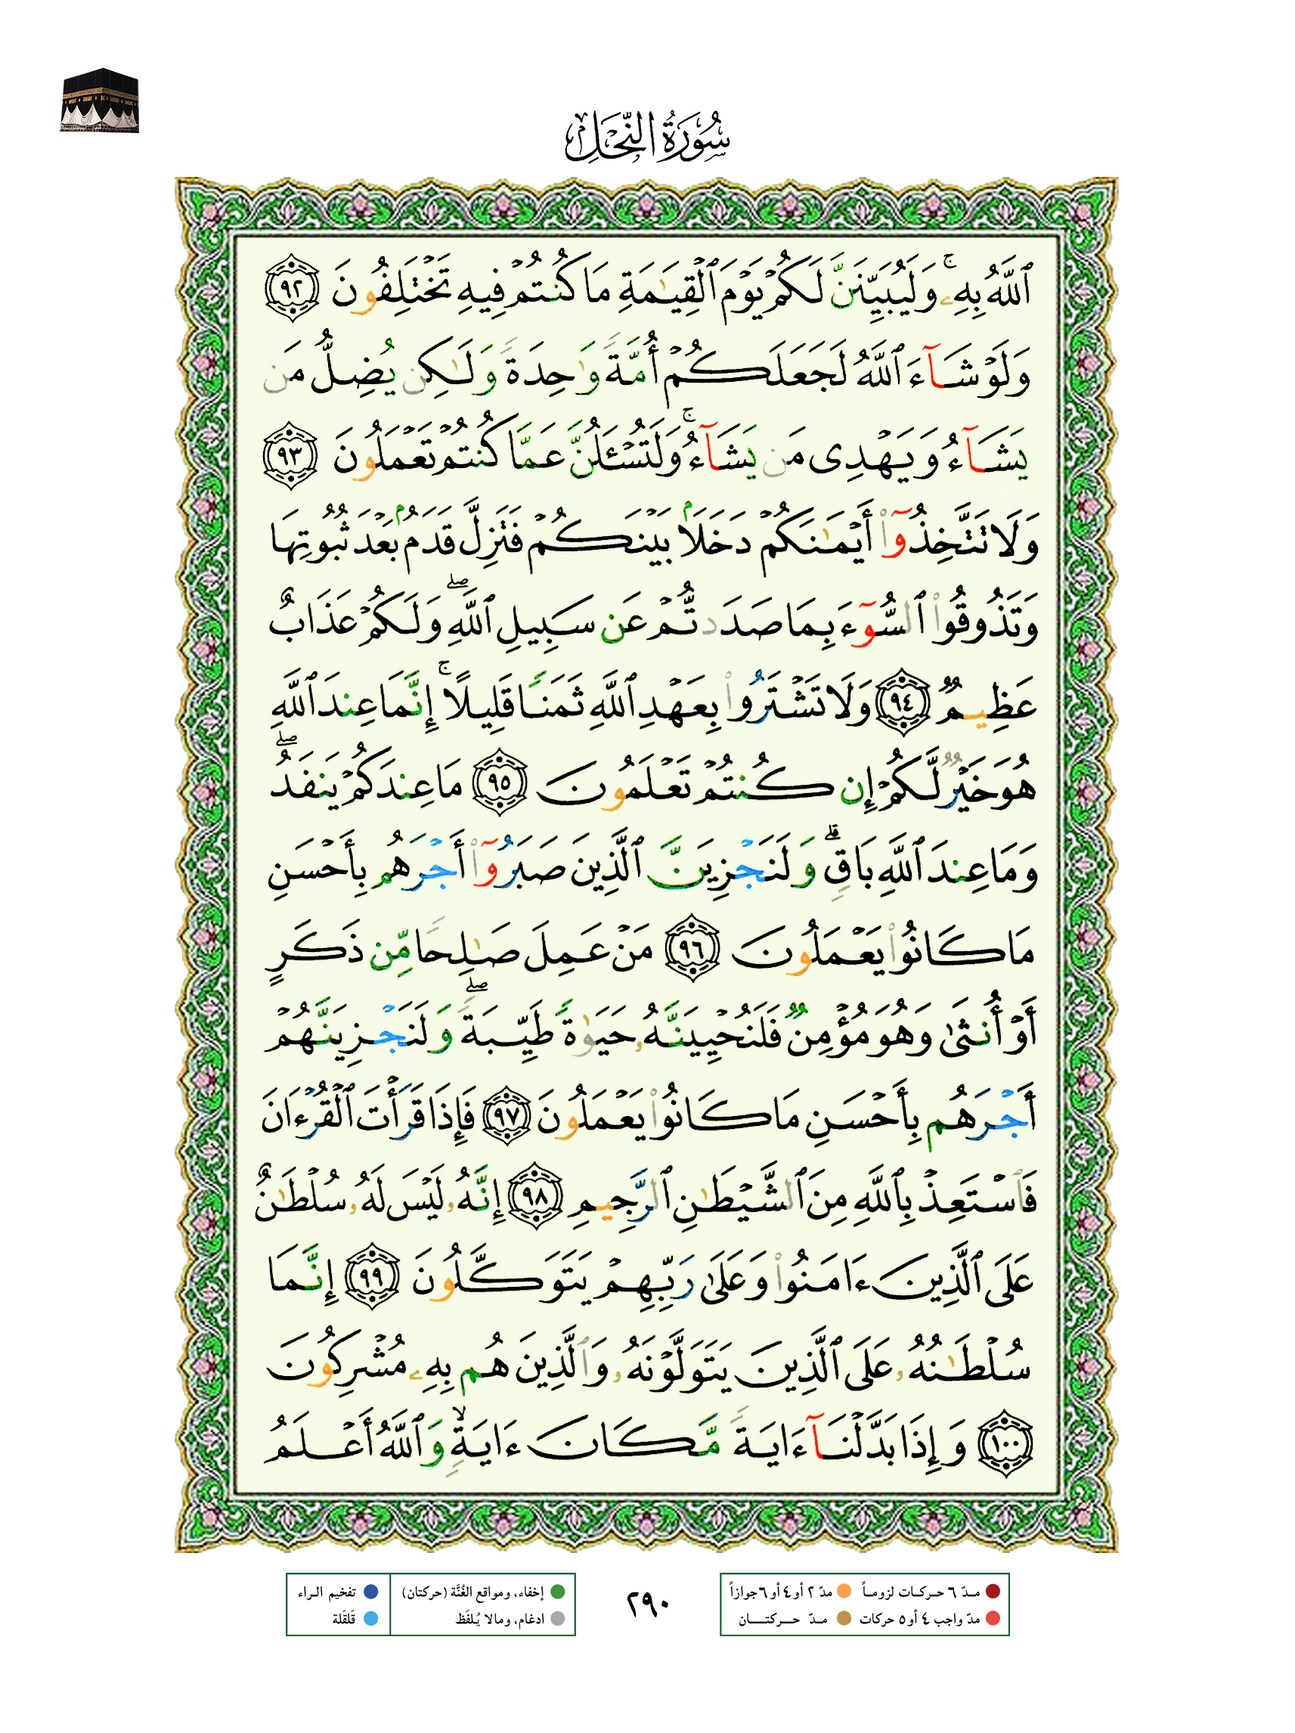 سُورَةُ النَّحْلِ
ٱللَّهُ بِهِۦۚ وَلَيُبَيِّنَنَّ لَكُمْ يَوْمَ ٱلْقِيَـٰمَةِ مَا كُنتُمْ فِيهِ تَخْتَلِفُونَ ٩٢
وَلَوْ شَآءَ ٱللَّهُ لَجَعَلَكُمْ أُمَّةً وَٰحِدَةً وَلَـٰكِن يُضِلُّ مَن
يَشَآءُ وَيَهْدِى مَن يَشَآءُۚ وَلَتُسْـَٔلُنَّ عَمَّا كُنتُمْ تَعْمَلُونَ ٩٣
وَلَا تَتَّخِذُوٓا۟ أَيْمَـٰنَكُمْ دَخَلًۢا بَيْنَكُمْ فَتَزِلَّ قَدَمٌۢ بَعْدَ ثُبُوتِهَا
وَتَذُوقُوا۟ ٱلسُّوٓءَ بِمَا صَدَدتُّمْ عَن سَبِيلِ ٱللَّهِۖ وَلَكُمْ عَذَابٌ
عَظِيمٌ ٩٤ وَلَا تَشْتَرُوا۟ بِعَهْدِ ٱللَّهِ ثَمَنًا قَلِيلًاۚ إِنَّمَا عِندَ ٱللَّهِ
هُوَ خَيْرٌ لَّكُمْ إِن كُنتُمْ تَعْلَمُونَ ٩٥ مَا عِندَكُمْ يَنفَدُۖ
وَمَا عِندَ ٱللَّهِ بَاقٍۗ وَلَنَجْزِيَنَّ ٱلَّذِينَ صَبَرُوٓا۟ أَجْرَهُم بِأَحْسَنِ
مَا كَانُوا۟ يَعْمَلُونَ ٩٦ مَنْ عَمِلَ صَـٰلِحًا مِّن ذَكَرٍ
أَوْ أُنثَىٰ وَهُوَ مُؤْمِنٌ فَلَنُحْيِيَنَّهُۥ حَيَوٰةً طَيِّبَةًۖ وَلَنَجْزِيَنَّهُمْ
أَجْرَهُم بِأَحْسَنِ مَا كَانُوا۟ يَعْمَلُونَ ٩٧ فَإِذَا قَرَأْتَ ٱلْقُرْءَانَ
فَٱسْتَعِذْ بِٱللَّهِ مِنَ ٱلشَّيْطَـٰنِ ٱلرَّجِيمِ ٩٨ إِنَّهُۥ لَيْسَ لَهُۥ سُلْطَـٰنٌ
عَلَى ٱلَّذِينَ ءَامَنُوا۟ وَعَلَىٰ رَبِّهِمْ يَتَوَكَّلُونَ ٩٩ إِنَّمَا
سُلْطَـٰنُهُۥ عَلَى ٱلَّذِينَ يَتَوَلَّوْنَهُۥ وَٱلَّذِينَ هُم بِهِۦ مُشْرِكُونَ
١٠٠ وَإِذَا بَدَّلْنَآ ءَايَةً مَّكَانَ ءَايَةٍۙ وَٱللَّهُ أَعْلَمُ
مـدّ ٦ حـركـات لزومـاً مدّ ٢ أو ٤ أو ٦ جوازاً
مدّ واجب ٤ أو ٥ حركات مـدّ حـــركـتـــــان
٢٩٠
إخفاء، ومواقع الغُنَّة (حركتان) تفخيم الـراء
ادغام، ومالا يُـلفَظ قَلقَلة